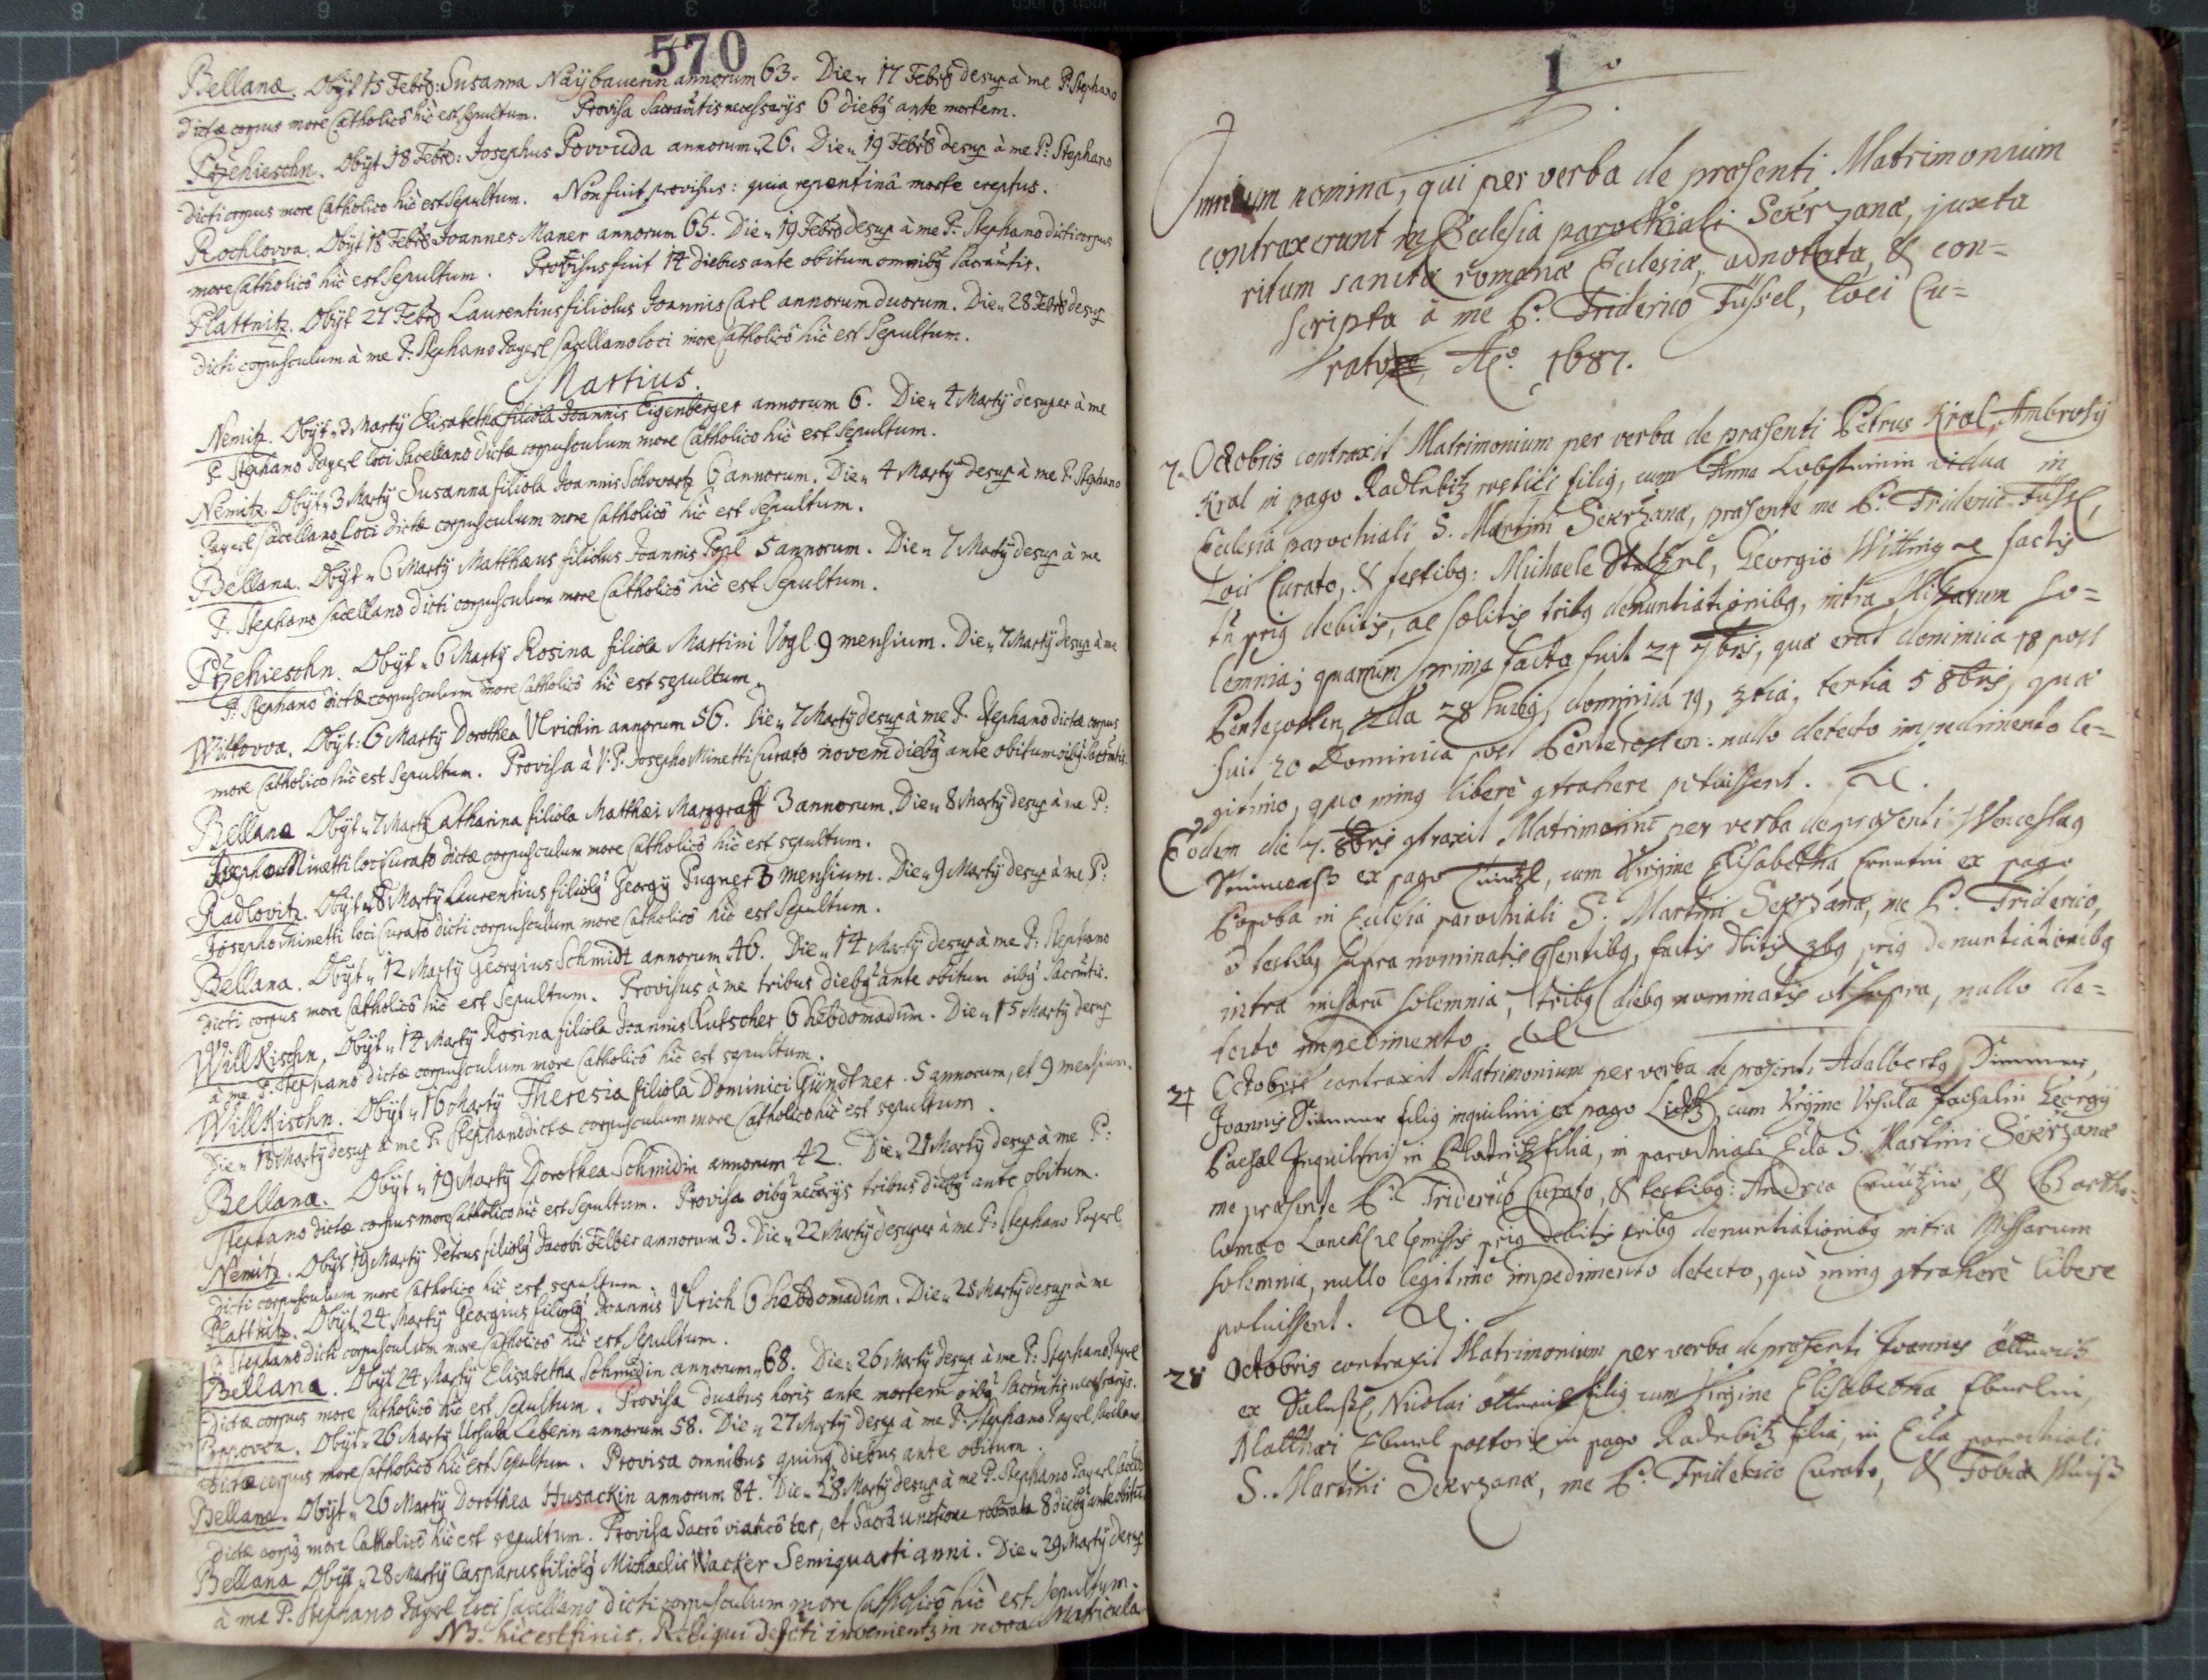 570
Bellana. Obÿt 15 Febrs: Susanna Naÿbauerin annorum 63. Die 17 Febrs desup à me P. Stephano
dictæ corpus more Catholicô hîc est sepultum. Provisa Sacramtis necessarÿs 6 diebq ante mortem.
Obÿt 18 Febrs: Josephus Povvuda annorum 26. Die 19 Febrs desup à me P: Stephano
dicti corpus more Catholico hic est Sepultum. Non fuit provisus: quia repentinâ morte ereptus.
Rochlovva. Obÿt 18 Febrs Joannes Maner annorum 65. Die 19 Febrs desup à me P: Stephano dicti corpus
more Catholicô hîc est Sepultum. Provisus fuit 14 diebus ante obitum omnibq Sacramtis.
Plattnitz. Obÿt 27 Febrs Laurentius filiolus Joannis Carl annorum duorum. Die 28 Febrs desup
dicti corpusculum à me P. Stephano Payerl Sacellano loci more Catholicô hîc est Sepultum.
Martius.
Nemitz. Obÿt 3 Martÿ Elisabetha filiola Joannis Eigenberger annorum 6. Die 4 Martÿ desuper à me
P. Stephano Payerl loci Sacellano dictæ corpusculum more Catholico hîc est Sepultum.
Nemitz. Obÿt 3 Martÿ Susanna filiola Joannis Schwartz 6 annorum. Die 4 Martÿ desup à me P. Stephano
Payerl Sacellano loci dictæ corpusculum more Catholicô hîc est Sepultum.
Bellana. Obÿt 6 Martÿ Matthæus filiolus Joannis Popl 5 annorum. Die 7 Martÿ desup à me
P. Stephano Sacellano dicti corpusculum more Catholicô hîc est Sepultum.
Obÿt 6 Martÿ Rosina filiola Martini Vogl 9 mensium. Die 7 Martÿ desup à me
P. Stephano dictæ corpusculum more Catholicô hîc est sepultum.
Wittovva. Obÿt: 6 Martÿ Dorothea Vlrichin annorum 56. Die 7 Martÿ desup à me P. Stephano dictæ corpus
more Catholico hîc est Sepultum. Provisa à V. P. Josepho Minetti Curato novem diebq ante obitum oibq Sacramtis.
Bellana Obÿt 7 Martÿ Catharina filiola Matthæi Marggraff 3 annorum. Die 8 Martÿ desup à me P:
Josepho Minetti loci Curato dictæ corpusculum more Catholicô hîc est sepultum.
Radlovitz. Obÿt 8 Martÿ Laurentius filiolq Georgÿ Pugner 3 mensium. Die 9 Martÿ desup à me P:
Josepho Minetti loci Curato dicti corpusculum more Catholicô hîc est Sepultum.
Bellana. Obÿt 12 Martÿ Georgius Schmidt annorum 46. Die 14 Martÿ desup à me P: Stephano
dicti corpus more Catholicô hîc est Sepultum. Provisus à me tribus diebq ante obitum oibq Sacramtis.
Willkischn. Obÿt 14 Martÿ Rosina filiola Joannis Kutscher 6 hebdomadûm. Die 15 Martÿ desup
à me P. Stephano dictæ corpusculum more Catholicô hîc est sepultum.
Willkischn. Obÿt 16 Martÿ Theresia filiola Dominici Gündtner. 5 annorum, et 9 mensium.
Die 18 Martÿ desup à me P: Stephano dictæ corpusculum more Catholico hîc est sepultum.
Bellana. Obÿt 19 Martÿ Dorothea Schmidin annorum 42. Die 21 Martÿ desup à me P:
Stephano dictæ corpus more Catholico hîc est Sepultum. Provisa oibq necarÿs tribus diebq ante obitum.
Nemitz. Obÿt 19 Martÿ Petrus filiolq Jacobi Felber annorum 3. Die 22 Martÿ desuper à me P: Stephano Payerl
dicti corpusculum more Catholico hîc est sepultum.
Plattnitz. Obÿt 24 Martÿ Georgius filiolq Joannis Vlrich 6 hebdomadûm. Die 25 Martÿ desup à me
P. Stephano dicti corpusculum more Catholicô hîc est Sepultum.
Bellana. Obÿt 24 Martÿ Elisabetha Schmidin annorum 68. Die 26 Martÿ desup à me P: Stephano Payerl
dictæ corpus more Catholicô hîc est Sepultum. Provisa duabus horis ante mortem oibq Sacramtis necessarÿs.
Obÿt 26 Martÿ Ursula Leberin annorum 58. Die 27 Martÿ desup à me P: Stephano Payerl Sacellano
dictæ corpus more Catholicô hîc est Sepultum. Provisa omnibus quinq diebus ante obitum.
Bellana. Obÿt 26 Martÿ Dorothea Husackin annorum 84. Die 28 Martÿ desup à me P. Stephano Payerl
dictæ corpq more Catholicô hîc est sepultum. Provisa Sacrô viaticô ter, et Sacrâ unctione roborata 8 diebq ante obitu
Bellana Obÿt 28 Martÿ Casparus filiolq Michaelis Wacker Semiquarti anni. Die 29 Martÿ desup
à me P. Stephano Payerl loci Sacellano dicti corpusculum more Catholicô hîc est Sepultum.
NB. hic est finis. Reliqui invenientr in nova Matricula
1
Omnium nomina, qui per verba de præsenti Matrimonium
contraxerunt in Ecclesia parochiali Sekrzanæ, juxta
ritum sanctæ romanæ Ecclesiæ, adnotata, & con=
scripta à me P: Friderico Füssel, loci Cu=
rato Ao. 1687.
7. Octobris contraxit Matrimonium per verba de præsenti Petrus Kral, Ambrosÿ
Kral in pago Radlubitz rustici filiq, cum Anna vidua in
Ecclesia parochiali S. Martini Sekrzanæ, præsente me P: Frideric Füssel,
Loci Curato, & testibq: Michaele Georgio Wittmig factis
tn priq debitis, ac solitis tribq denuntiationibq, intra Missarum so=
lemnia; quarum prima facta fuit 21 7bris, quæ erat dominica 18 post
Pentecosten, 2da 28 dominica 19, tertia 5 8bris, quæ
fuit 20 Dominica post Pentecosten: nullo detecto impedimento le=
gitimo, quo minq liberè gtrahere potuissent.
Eodem die 7. 8bris gtraxit Matrimoniu per verba de præsenti Wenceslaq
ex pago cum Virgine Elisabetha ex pago
in Ecclesia parochiali S. Martini Sekrzanæ, me P: Friderico,
testibq supra nominatis factis priq denuntiationibq
intra missarũ solemnia, tribq diebq nominatis ut supra, nullo de=
tecto impedimento.
21 Octobris contraxit Matrimonium per verba de præsenti Adalbertq Simmer,
Joannis Simmer filiq inquilini ex pago cum Virgine Vrsula Pachalin Georgÿ
Pachal Inquilini in Pladnitz filia, in parochiali Ecla S. Martini Sekrzanæ
me præsente P: Friderico Curato, & testibq: Andrea & Bartho=
lomæo priq debitis tribq denuntiationibq intra Missarum
solemnia, nullo legitimo impedimento detecto, quò minq gtrahere libere
potuissent.
28 Octobris contraxit Matrimonium per verba de præsenti Joannes
ex Nicolai filiq cum Virgine Elisabetha
Matthæi pastoris in pago Radlubitz filia, in Ecla parochiali
S. Martini Sekrzanæ, me P: Friderico Curato, & Tobia